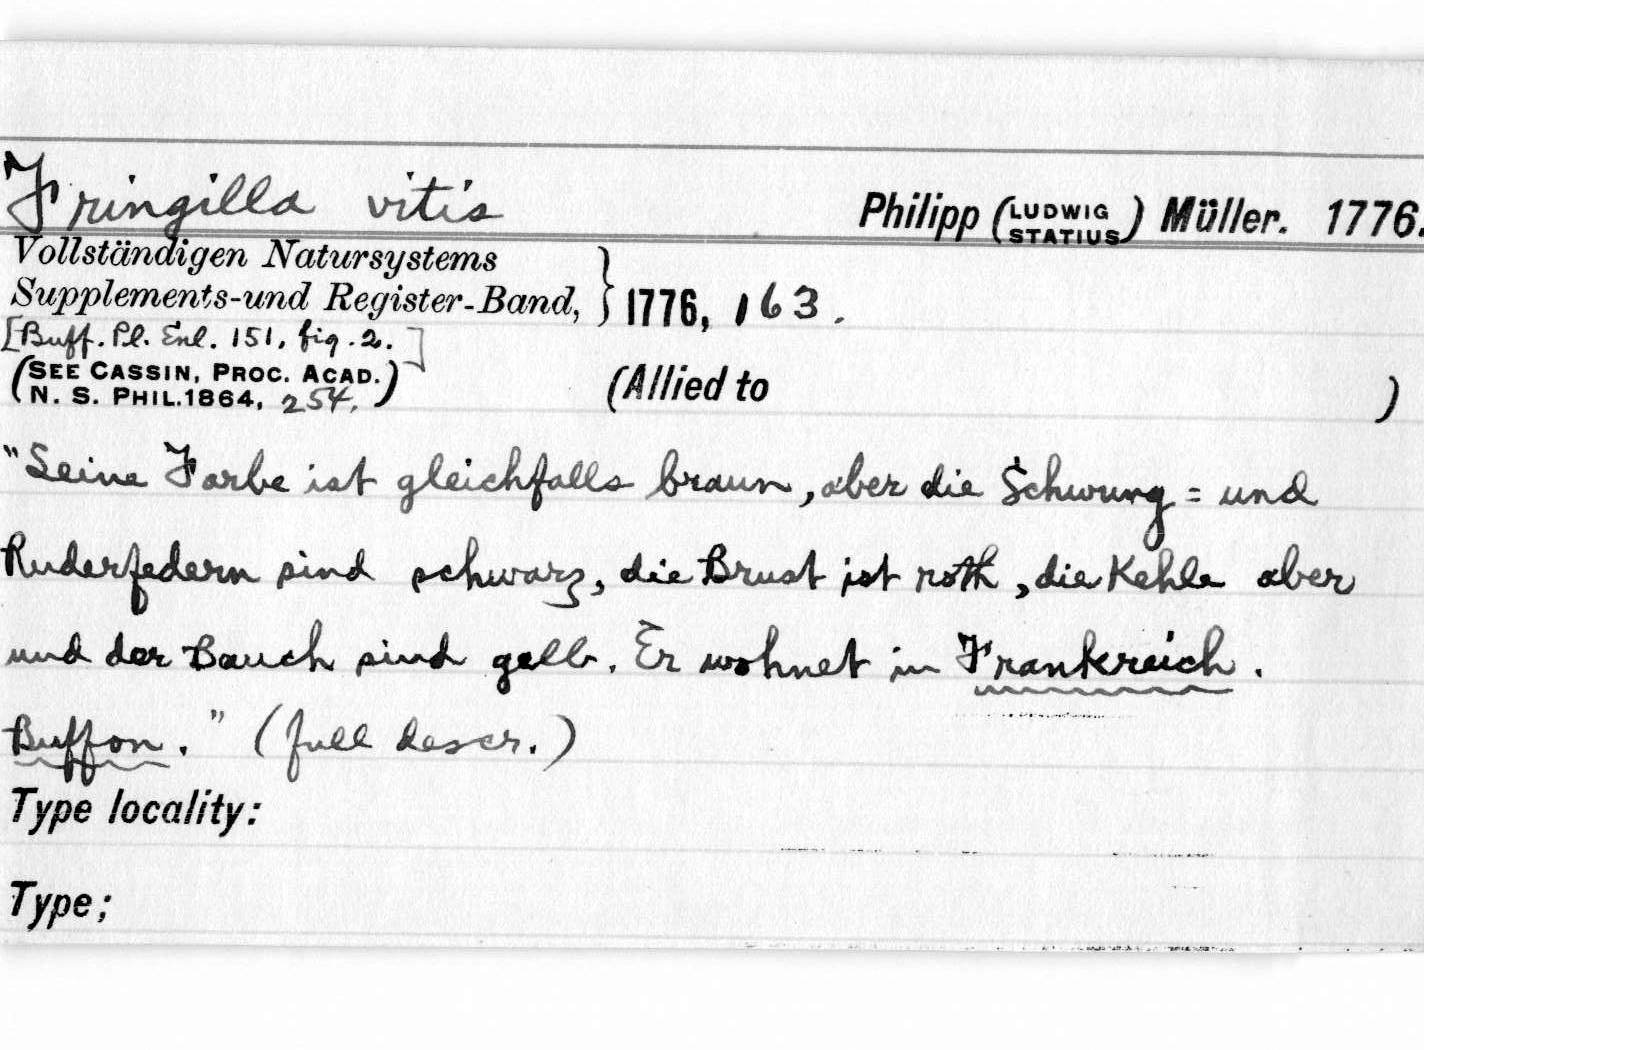 Fringilla vitis Philipp (LUDWIG STATIUS) Müller. 1776.
Vollständigen Natursystems
Supplements-und Register-Band, } 1776, 163.
[Buff. Pl. Enl. 151, fig. 2.]
(SEE CASSIN, PROC. ACAD.
N. S. PHIL. 1864, 254.) (Allied to )
"Seine Farbe ist gleichfalls braun, aber die Schwung= und
Ruderfedern sind schwarz, die Brust ist roth, die Kehle aber
und der Bauch sind gelb. Er wohnet in Frankreich.
Buffon." (full descr.)
Type locality:
Type;